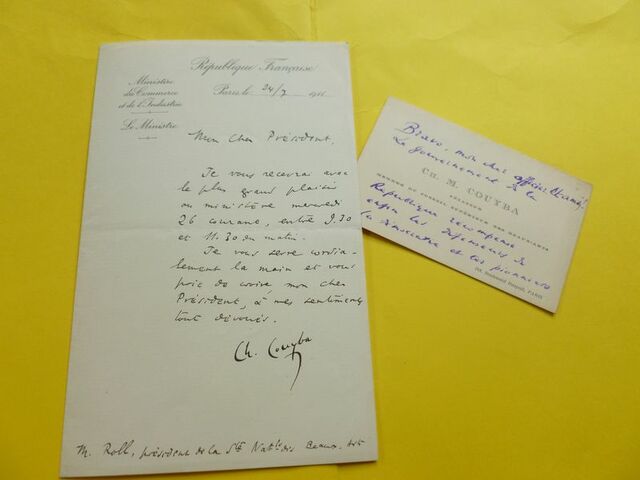 République Française
Ministère
du Commerce
et de l'Industrie
Le Ministre
Paris, le 24/7 1911
Mon cher Président,
Je vous recevrai avec
le plus grand plaisir
au ministère mercredi
26 courant, entre 9.30
et 11.30 du matin.
Je vous serre cordia-
lement la main et vous
prie de croire, mon cher
Président, à mes sentiments
tout dévoués.
Ch. Couyba
M. Roll, président de la Sté Natle des Beaux-Arts
Bravo, mon cher officier
Le gouvernement de la
CH. M. COUYBA
MEMBRE DU CONSEIL SUPÉRIEUR DES BEAUX-ARTS
République récompense
enfin les défenseurs de
la et les pionniers
PARIS